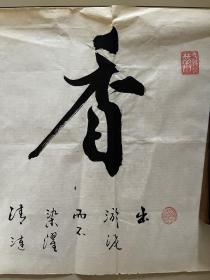 香
出
淤泥
而不
染濯
清漣